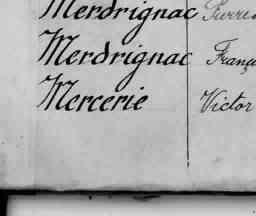 Merdrignac Pierre
Merdrignac Franç
Mercerie Victor